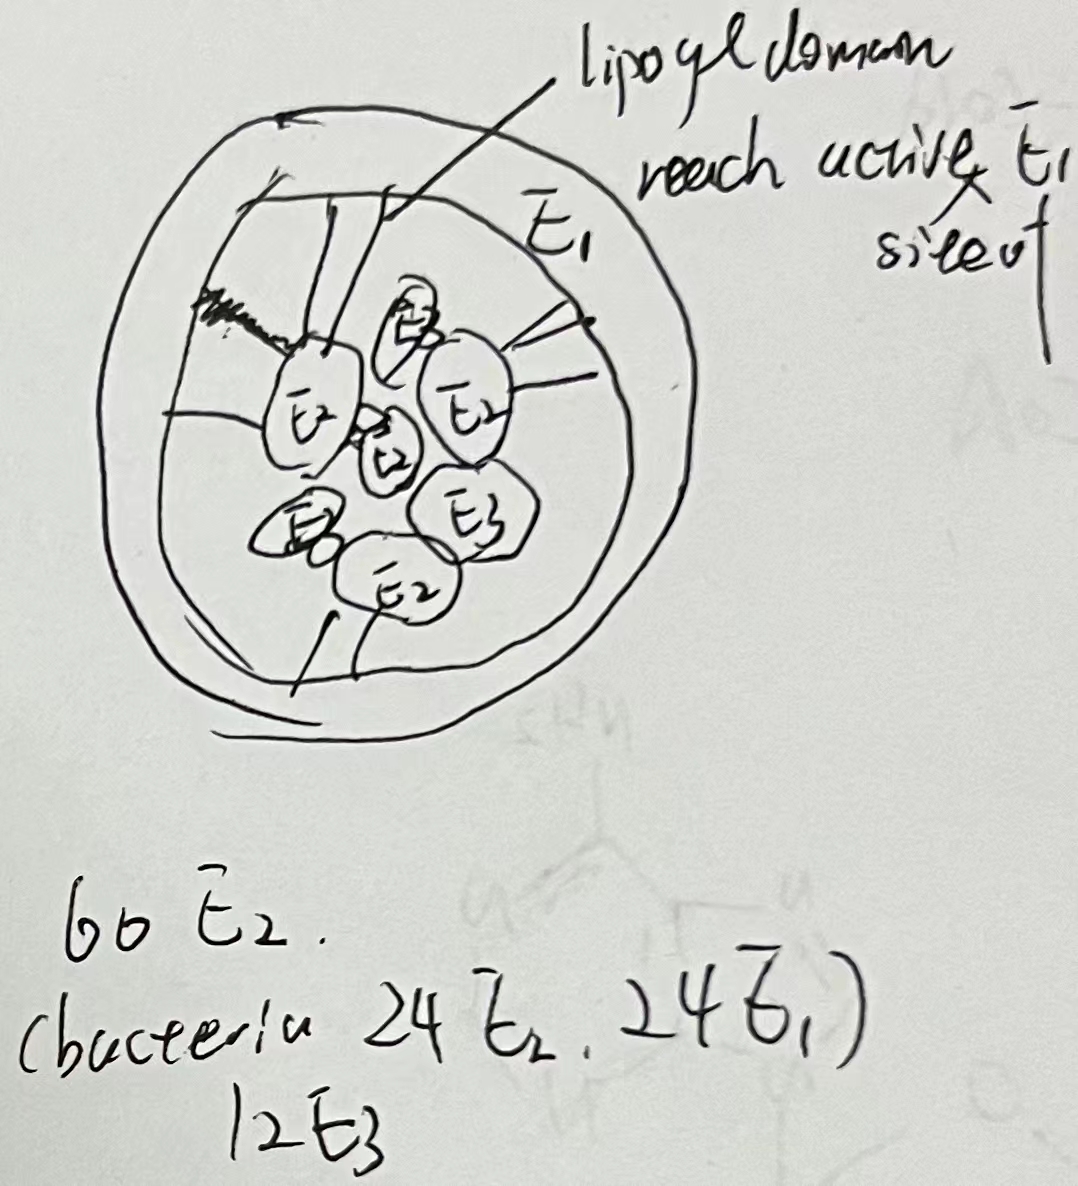 lipoyl domain
reach active E1
site of
E1
E2
E2
E2
E3
E2
60 E2.
(bacteria 24 E2. 24 E1)
12 E3